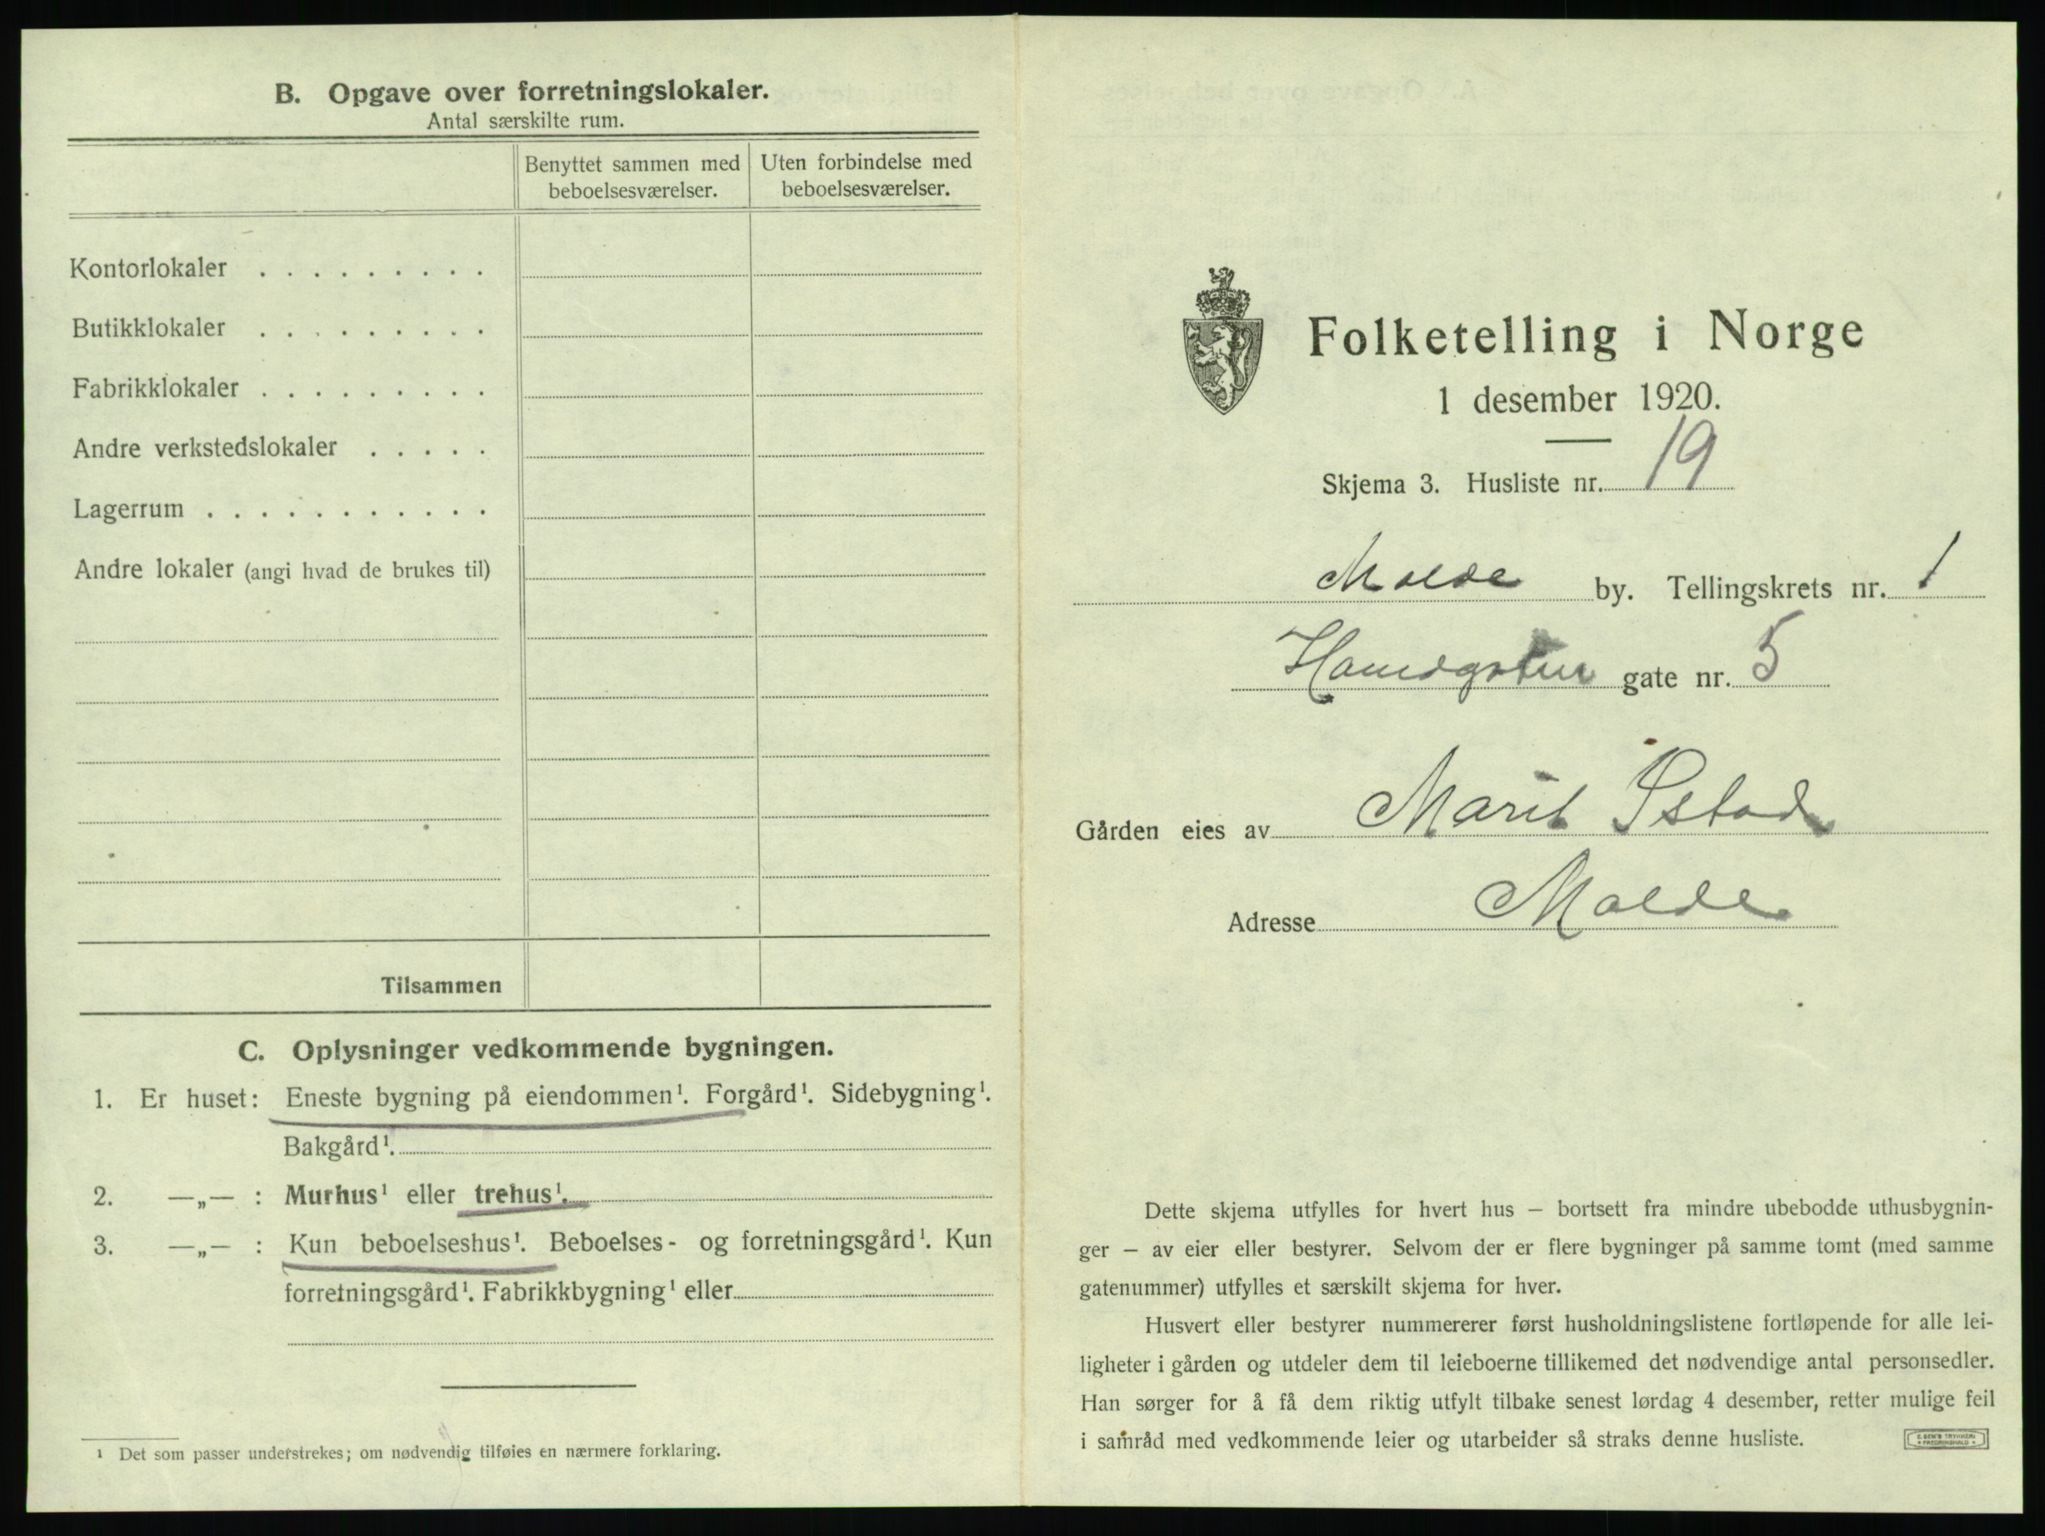 B. Opgave over forretningslokaler.
Antal særskilte rum.
Benyttet sammen med beboelsesværelser.
Uten forbindelse med beboelsesværelser.
Kontorlokaler . . . . . . . . .
Butikklokaler . . . . . . . . .
Fabrikklokaler . . . . . . . . .
Andre verkstedslokaler . . . . .
Lagerrum . . . . . . . . . . .
Andre lokaler (angi hvad de brukes til)
Tilsammen
C. Oplysninger vedkommende bygningen.
1. Er huset: Eneste bygning på eiendommen¹. Forgård¹. Sidebygning¹.
Bakgård¹.
2. —„— : Murhus¹ eller trehus¹.
3. —„— : Kun beboelseshus¹. Beboelses- og forretningsgård¹. Kun
forretningsgård¹. Fabrikkbygning¹ eller
¹ Det som passer understrekes; om nødvendig tilføies en nærmere forklaring.
Folketelling i Norge
1 desember 1920.
Skjema 3. Husliste nr. 19
Molde by. Tellingskrets nr. 1
gate nr. 5
Gården eies av Marit Istad
Adresse Molde
Dette skjema utfylles for hvert hus — bortsett fra mindre ubebodde uthusbygnin-
ger — av eier eller bestyrer. Selvom der er flere bygninger på samme tomt (med samme
gatenummer) utfylles et særskilt skjema for hver.
Husvert eller bestyrer nummererer først husholdningslistene fortløpende for alle lei-
ligheter i gården og utdeler dem til leieboerne tillikemed det nødvendige antal personsedler.
Han sørger for å få dem riktig utfylt tilbake senest lørdag 4 desember, retter mulige feil
i samråd med vedkommende leier og utarbeider så straks denne husliste.